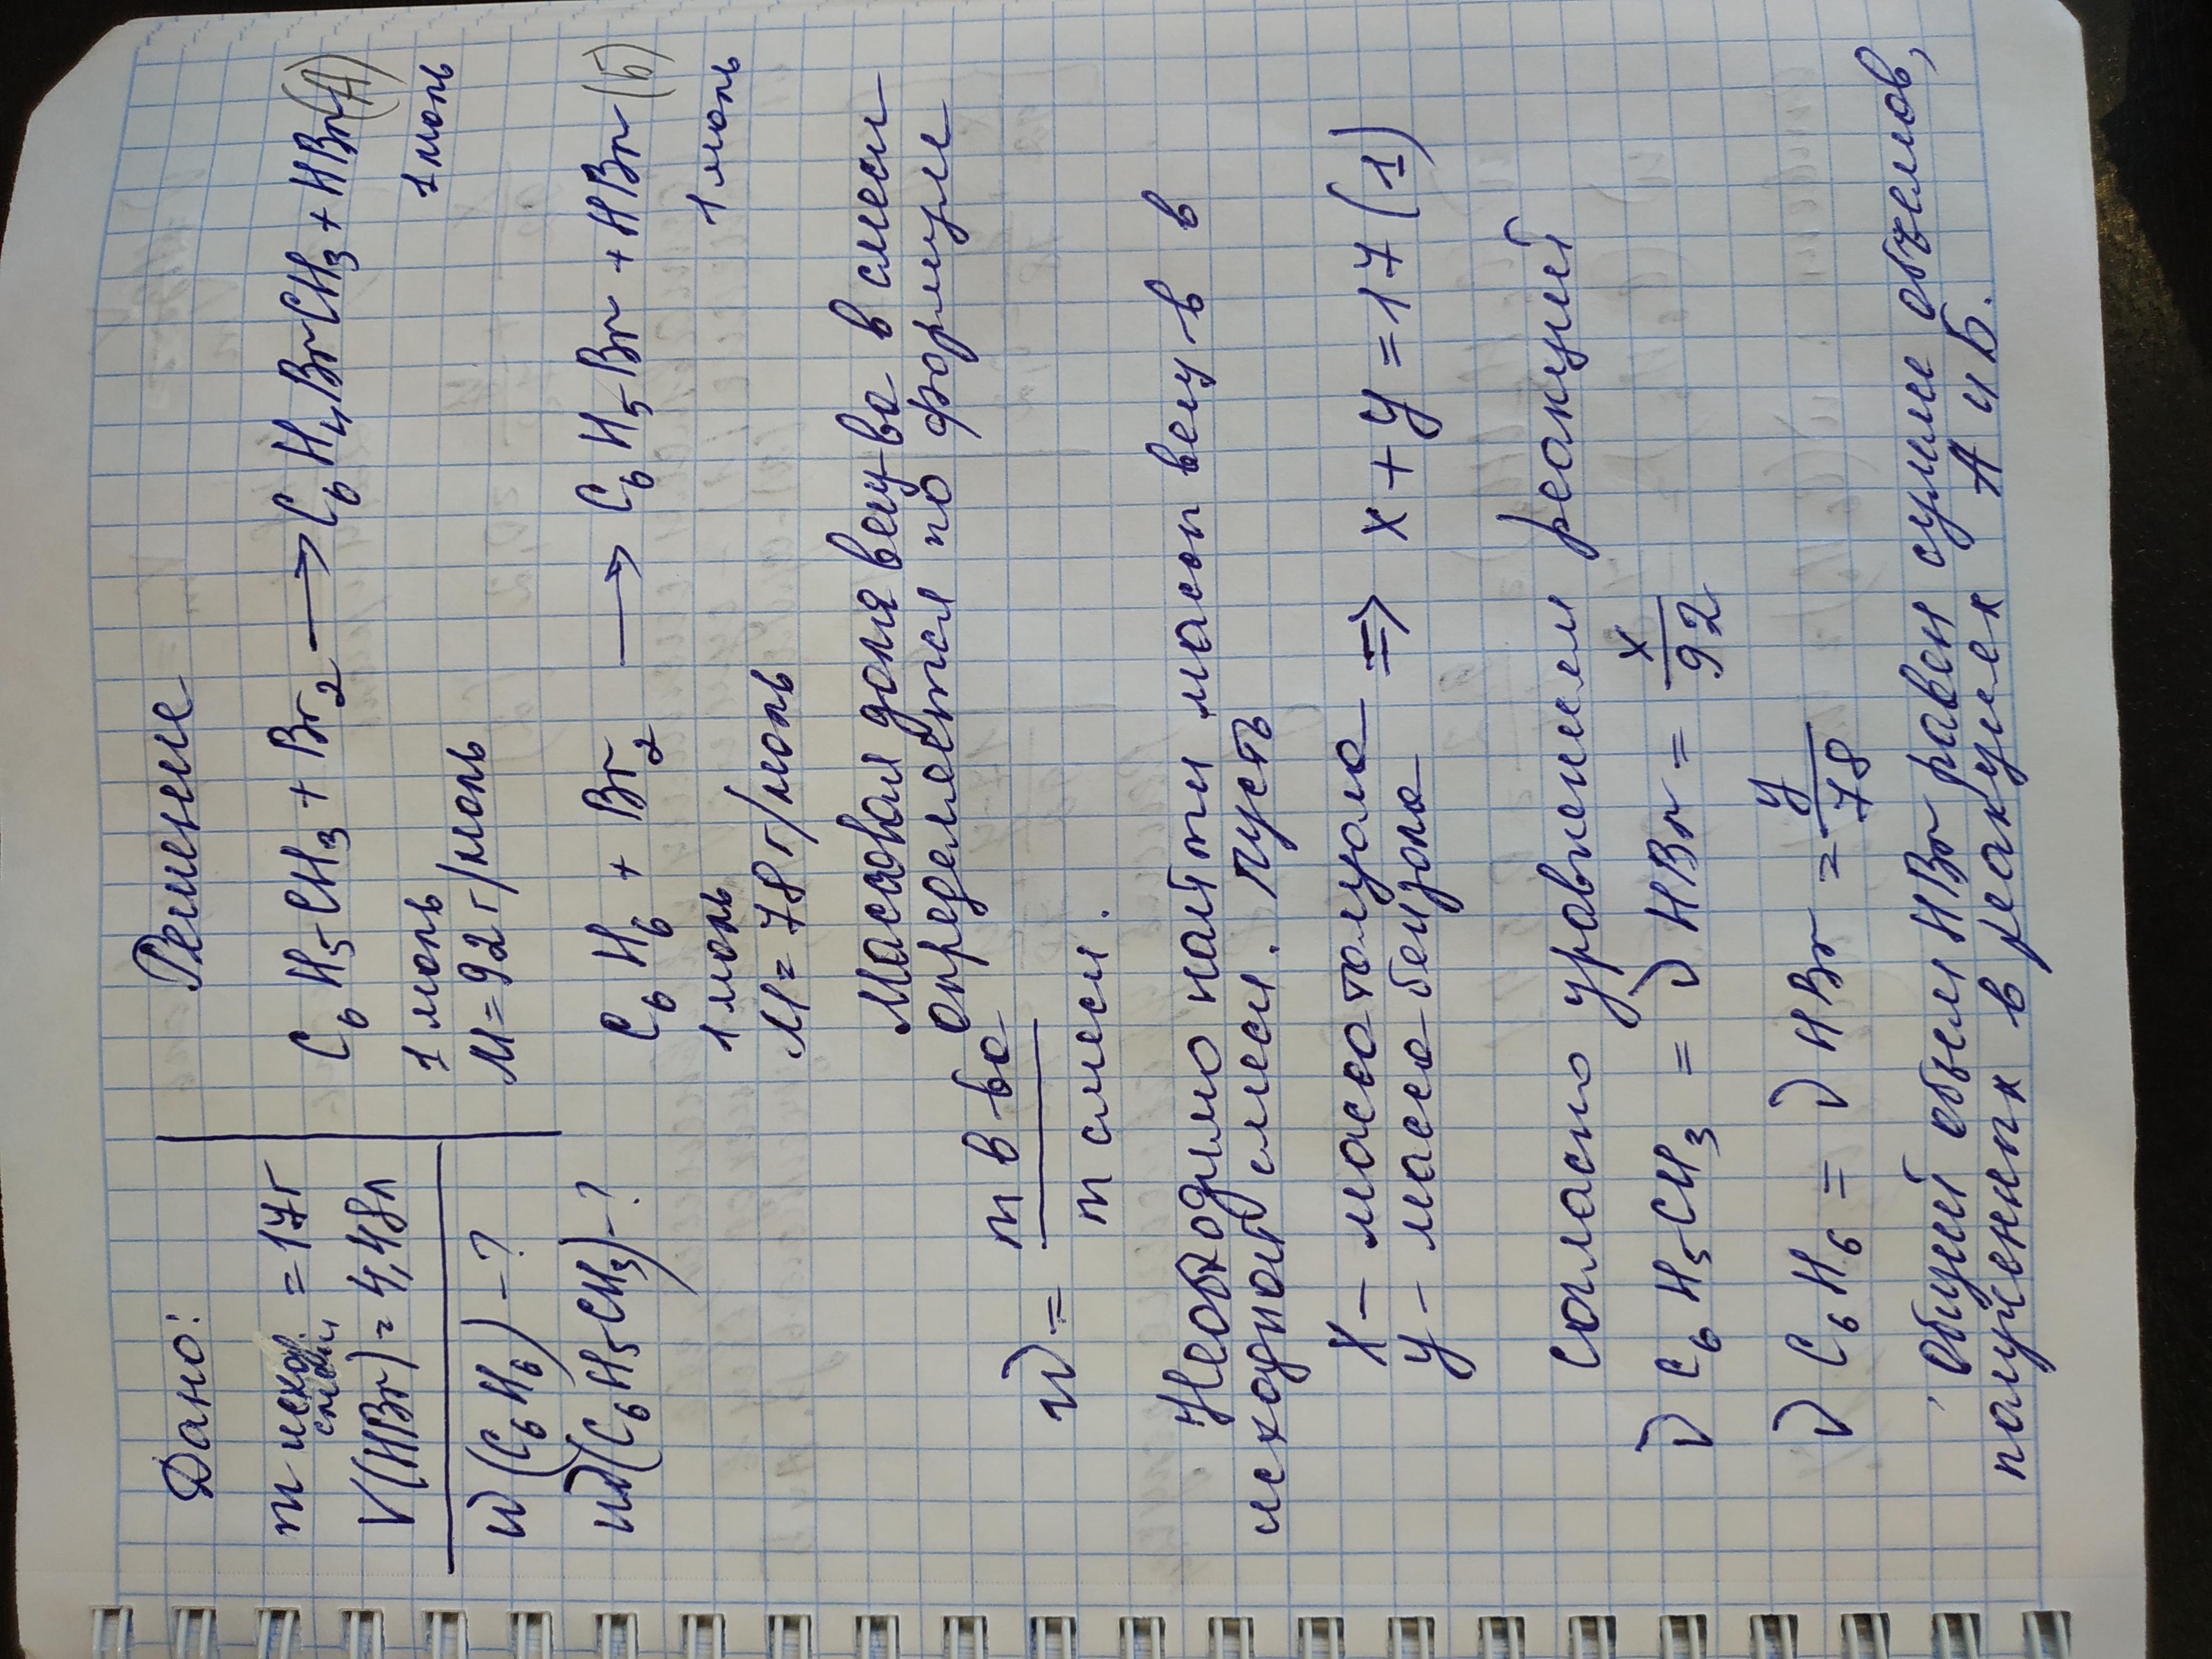 Дано:
m исход. смеси = 17г
V(HBr) = 4,48л
w(C6H6) - ?
w(C6H5CH3) - ?
Решение
C6H5CH3 + Br2 → C6H4BrCH3 + HBr (А)
1 моль 1 моль
M = 92 г/моль
C6H6 + Br2 → C6H5Br + HBr (Б)
1 моль 1 моль
M = 78 г/моль
Масовая доля вещ-ва в смеси
определяется по формуле
w = m в-ва / m смеси.
Необходимо найти массы вещ-в в
исходной смеси. Пусть
x - масса толуола ⇒ x + y = 17 (1)
y - масса бензола
Согласно уравнениям реакций
ν C6H5CH3 = ν HBr = x/92
ν C6H6 = ν HBr = y/78
Общий объем HBr равен сумме объемов,
полученных в реакциях А и Б.